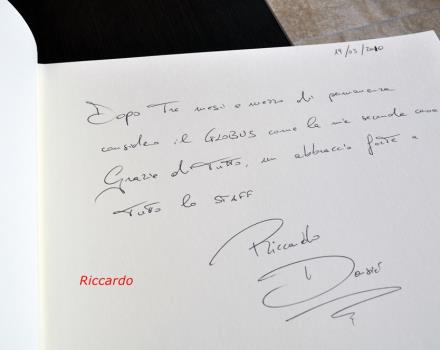 19/03/2010
Dopo Tre mesi e mezzo di permanenza
considero il GLOBUS come la mia seconda casa
Grazie di Tutto, un abbraccio forte a
Tutto lo STAFF
Riccardo
Riccardo